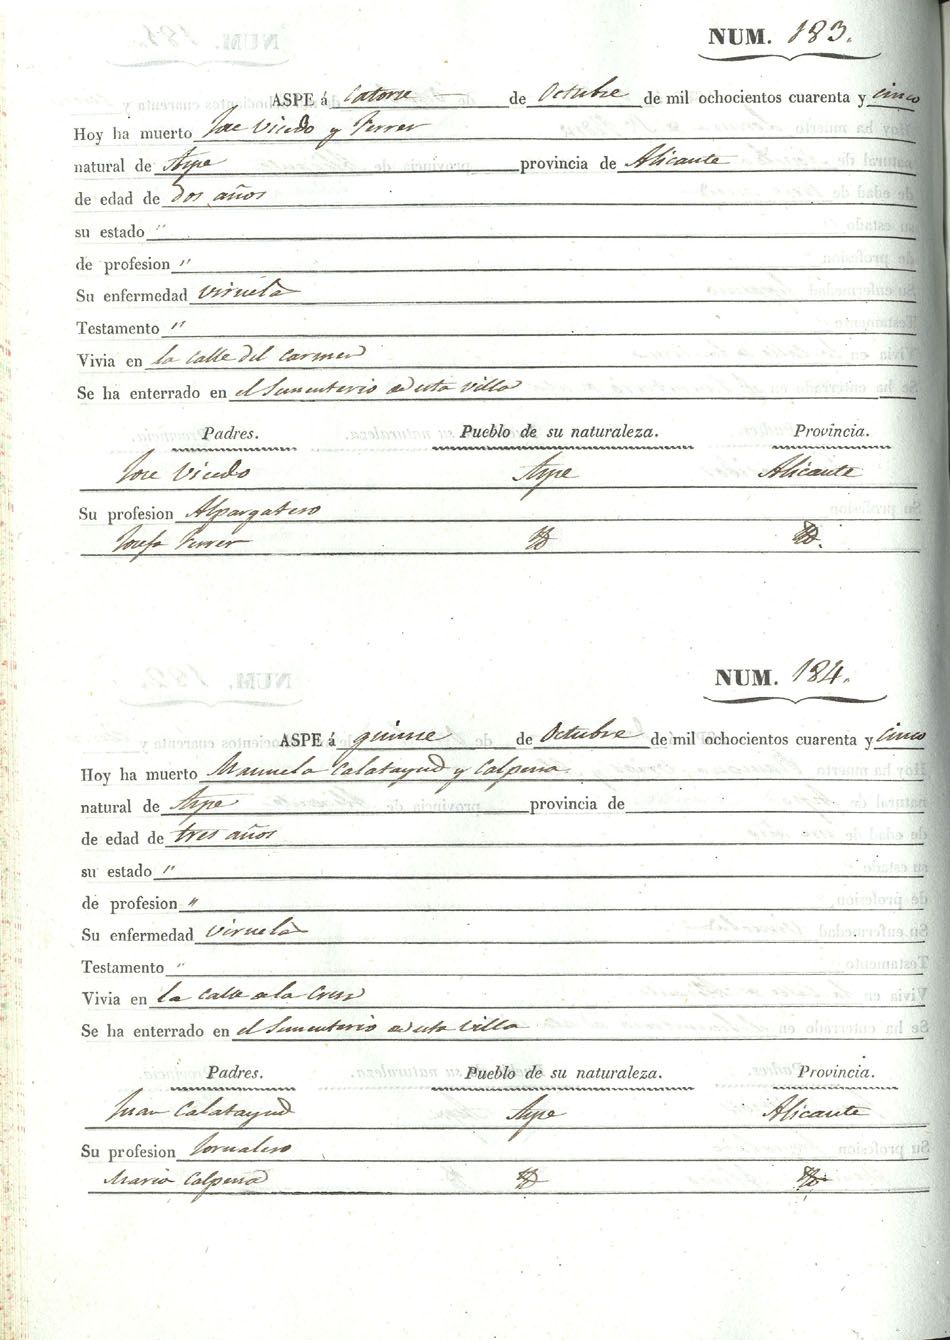 NUM. 183.
ASPE á Catorse de Octubre de mil ochocientos cuarenta y cinco
Hoy ha muerto Jose Vicedo y Ferrer
natural de Aspe provincia de Alicante
de edad de dos años
su estado "
de profesion "
Su enfermedad viruela
Testamento "
Vivia en la calle del Carmen
Se ha enterrado en el Sementerio de esta villa
Padres. Pueblo de su naturaleza. Provincia.
Jose Vicedo Aspe Alicante
Su profesion Alpargatero
Josefa Ferrer Yd Yd.
NUM. 184.
ASPE á quinse de Octubre de mil ochocientos cuarenta y cinco
Hoy ha muerto Manuela Calatayud y Calpena
natural de Aspe provincia de
de edad de tres años
su estado "
de profesion "
Su enfermedad viruela
Testamento "
Vivia en la calle de la Cruz
Se ha enterrado en el Sementerio de esta villa
Padres. Pueblo de su naturaleza. Provincia.
Juan Calatayud Aspe Alicante
Su profesion Jornalero
Maria Calpena Yd Yd